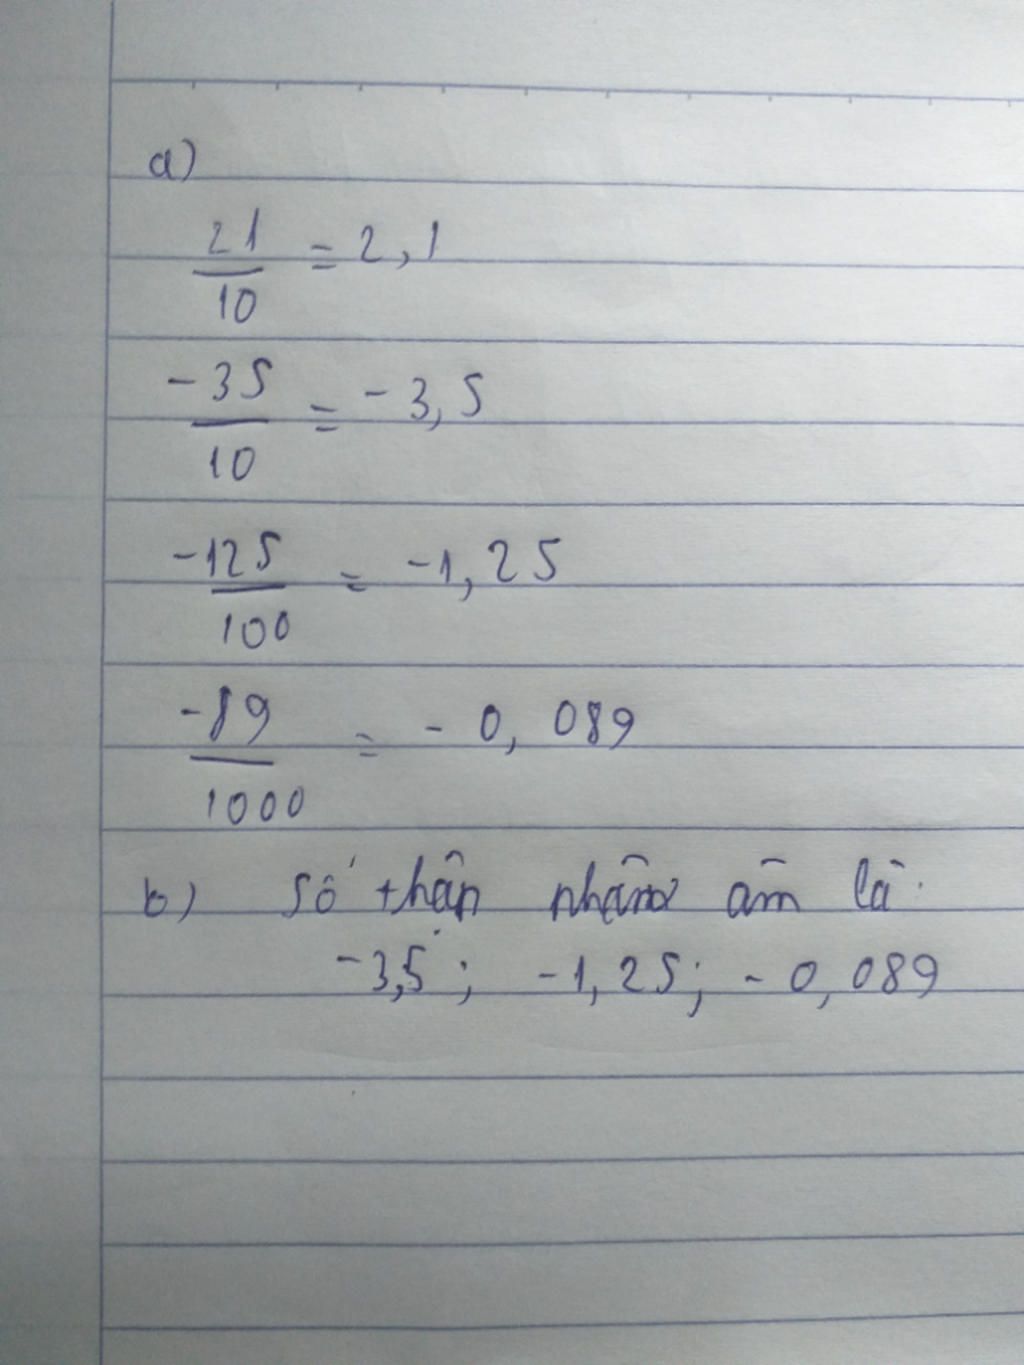 a)
21/10 = 2,1
-35/10 = -3,5
-125/100 = -1,25
-89/1000 = -0,089
b) Số thân nhâm âm là:
-3,5; -1,25; -0,089